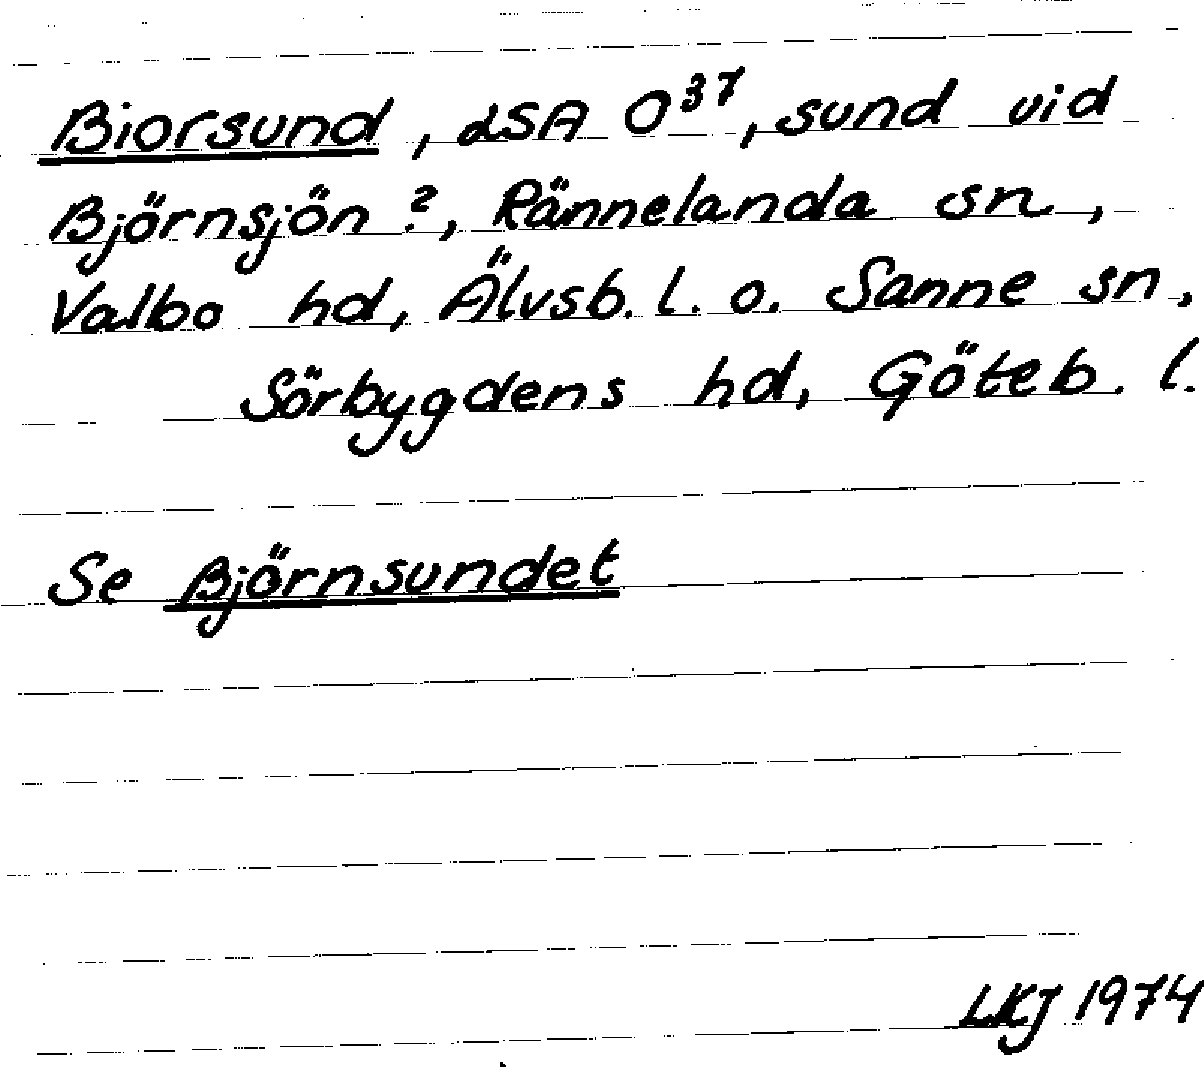 Biorsund, LSA O³⁷, sund vid
Björnsjön?, Rännelanda sn,
Valbo hd, Älvsb. l. o. Sanne sn,
Sörbygdens hd, Göteb. l.
Se Björnsundet
LKJ 1974